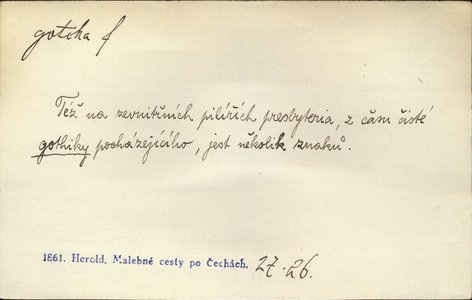 gotika f
Též na zevnitřních pilířích presbyteria, z čásu čisté
gothiky pocházejícího, jest několik znaků.
1861. Herold, Malebné cesty po Čechách. 27.26.